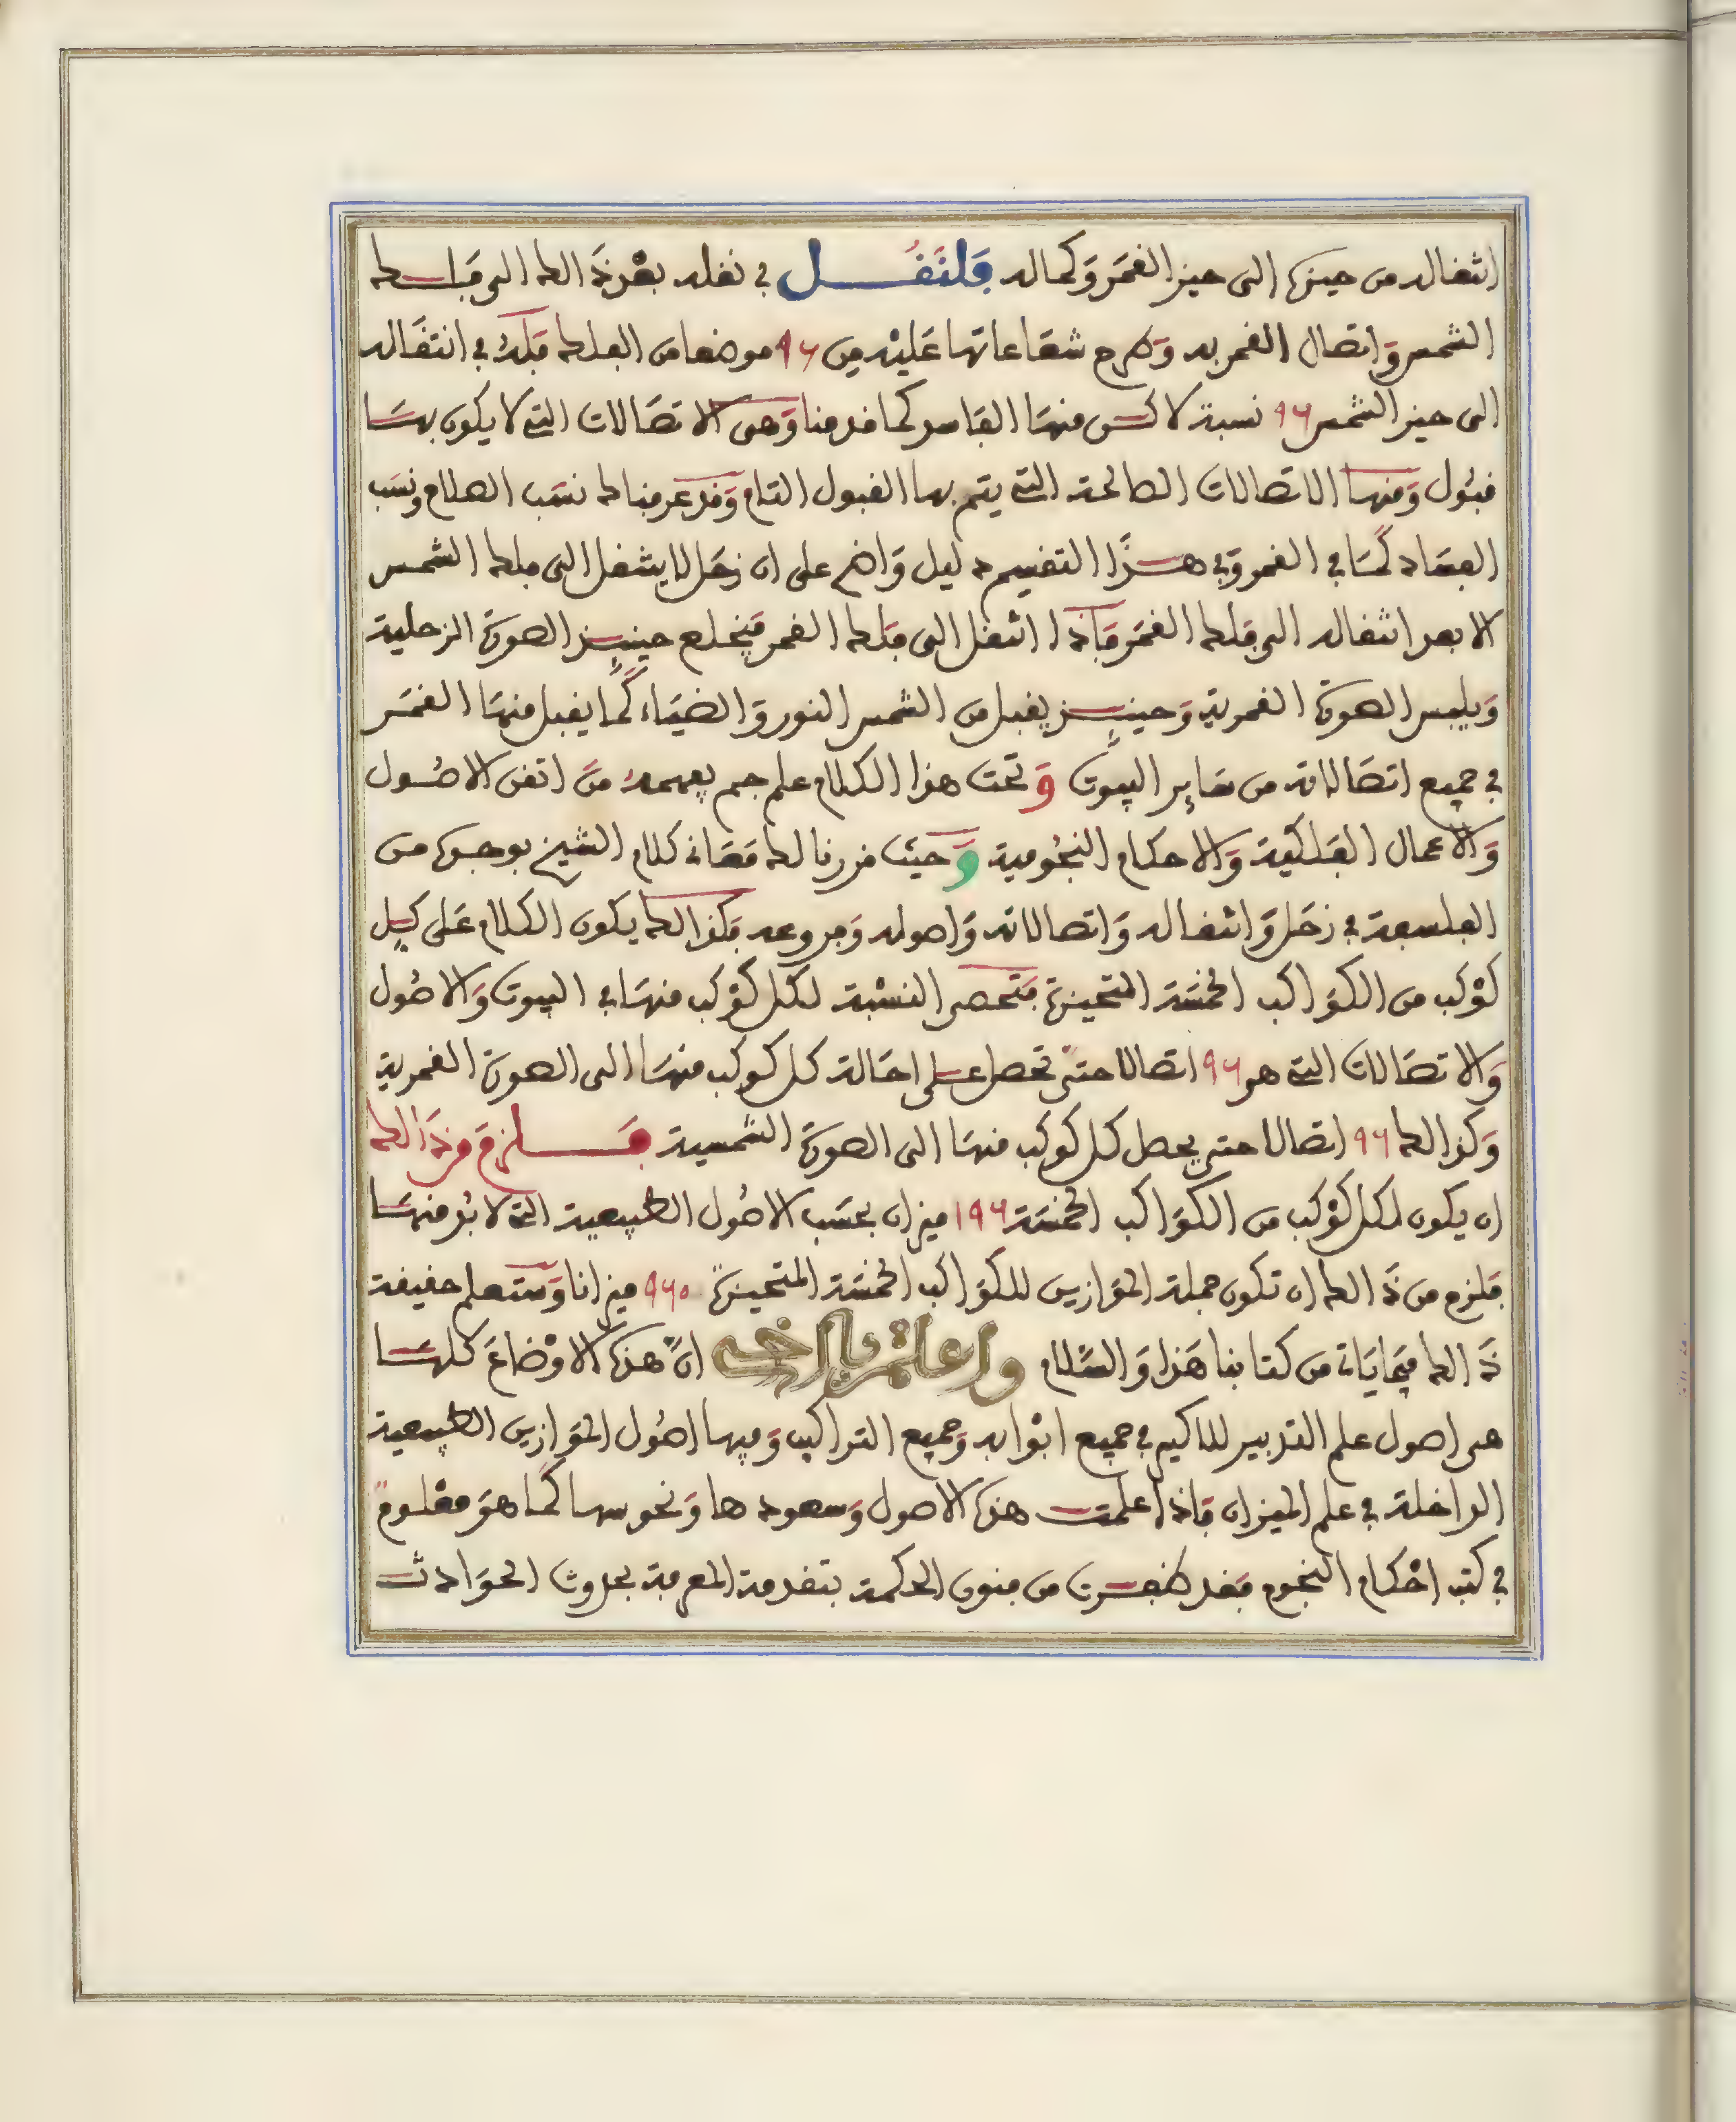 انتقاله من حيزه الى حيز القمر وكماله فلنقل في نقله بعد ذالك الى فلك
الشمس واتصال القمر به وطرح شعاعاتها عليه من 96 موضعا من الفلك فله في انتقاله
الى حيز الشمس 96 نسبة لاكن منها الفاسد كما قدمنا وهي الاتصالات التي لا يكون بها
قبول ومنها الاتصالات الصالحة التي يتم بها القبول التام وقد عرفناك نسب الصلاح ونسب
الفساد كما في القمر وفي هذا التقسيم دليل واضح على ان زحل لا ينتقل الى فلك الشمس
الا بعد انتقاله الى فلك القمر فاذا انتقل الى فلك القمر فيخلع حينيذ الصورة الزحلية
ويلبس الصورة القمرية وحينيذ يقبل من الشمس النور والضياء كما يقبل منها القمر
في جميع اتصالاته من ساير البيوت و تحت هذا الكلام علم جم يفهمه من اتقن الاصول
والاعمال الفلكية والاحكام النجومية و حيث قررنا لك معاني كلام الشيخ بوجوه من
الفلسفة في زحل وانتقاله واتصالاته واصوله وفروعه فكذالك يكون الكلام على كل
كوكب من الكواكب الخمسة المتحيزة فتحصر النسبة لكل كوكب منها في البيوت والاصول
والاتصالات التي هي 96 اتصالا حتى تحصل على احالة كل كوكب منها الى الصورة القمرية
وكذالك 96 اتصالا حتى يحصل كل كوكب منها الى الصورة الشمسية فلزم من ذالك
ان يكون لكل كوكب من الكواكب الخمسة 196 ميزان بحسب الاصول الطبيعية التي لابد منها
فلزم من ذالك ان تكون جملة الموازين للكواكب الخمسة المتحيزة 960 ميزانا وستعلم حقيقة
ذالك فيما ياتي من كتابنا هذا والسلام واعلم يا اخي ان هذه الاوضاع كلها
هي اصول علم التدبير للاكسير في جميع ابوابه وجميع التراكيب وفيها اصول الموازين الطبيعية
الداخلة في علم الميزان فاذا علمت هذه الاصول وسعودها ونحوسها كما هو معلوم
في كتب احكام النجوم فقد ظفرت من فنون الحكمة بتقدمة المعرفة بحدوث الحوادث